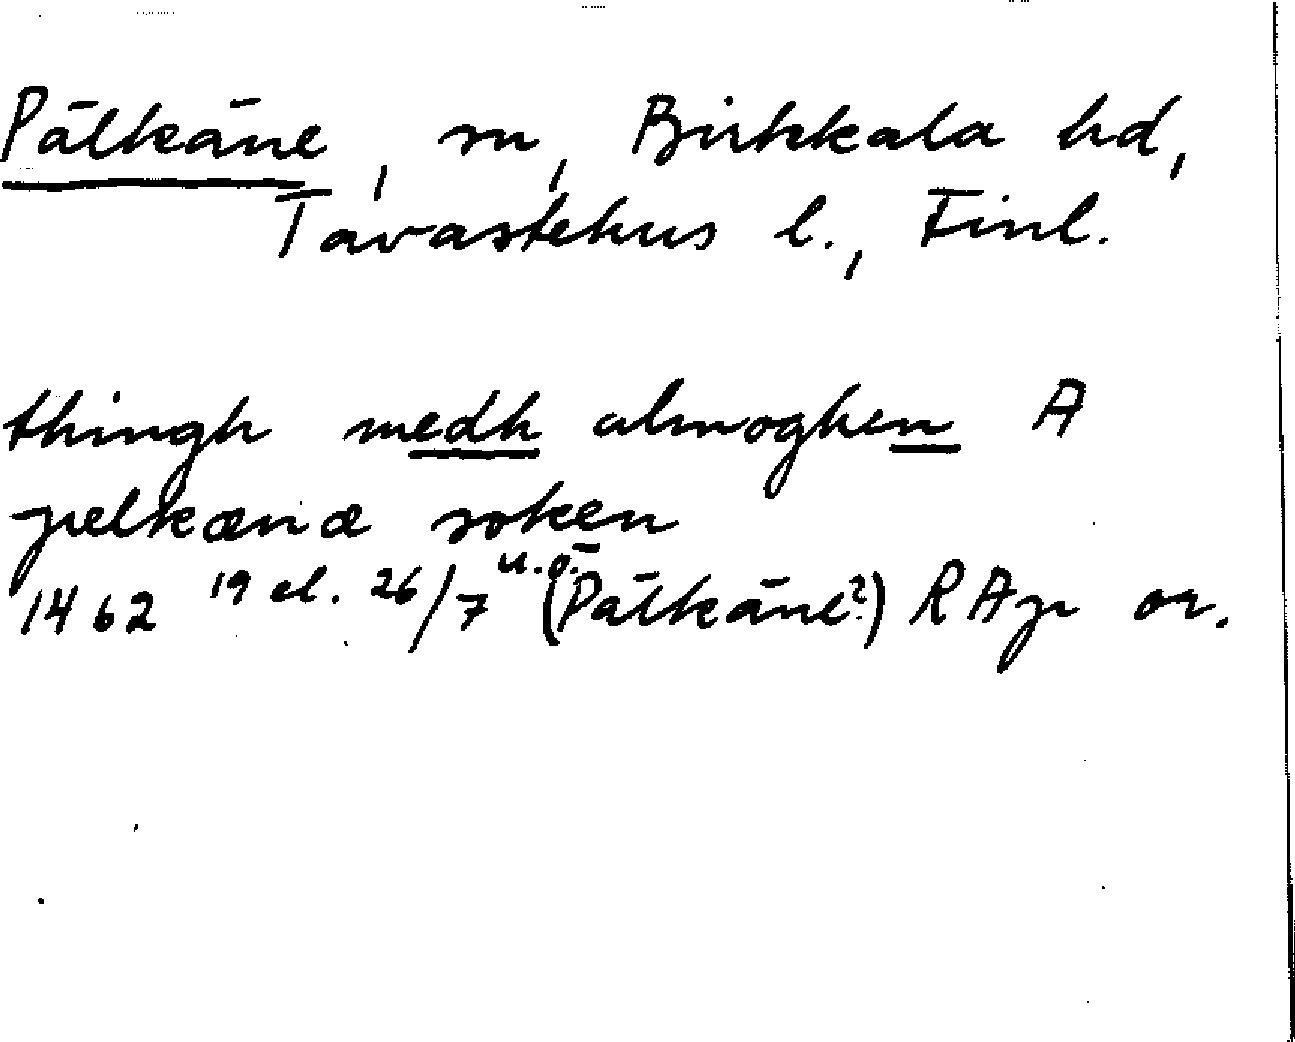 Pälkäne, sn, Birkkala hd,
Tavastehus l., Finl.
thingh medh almoghen A
pelkænæ soken
1462 19 el. 26/7 u.o. (Pälkäne?) RAp or.